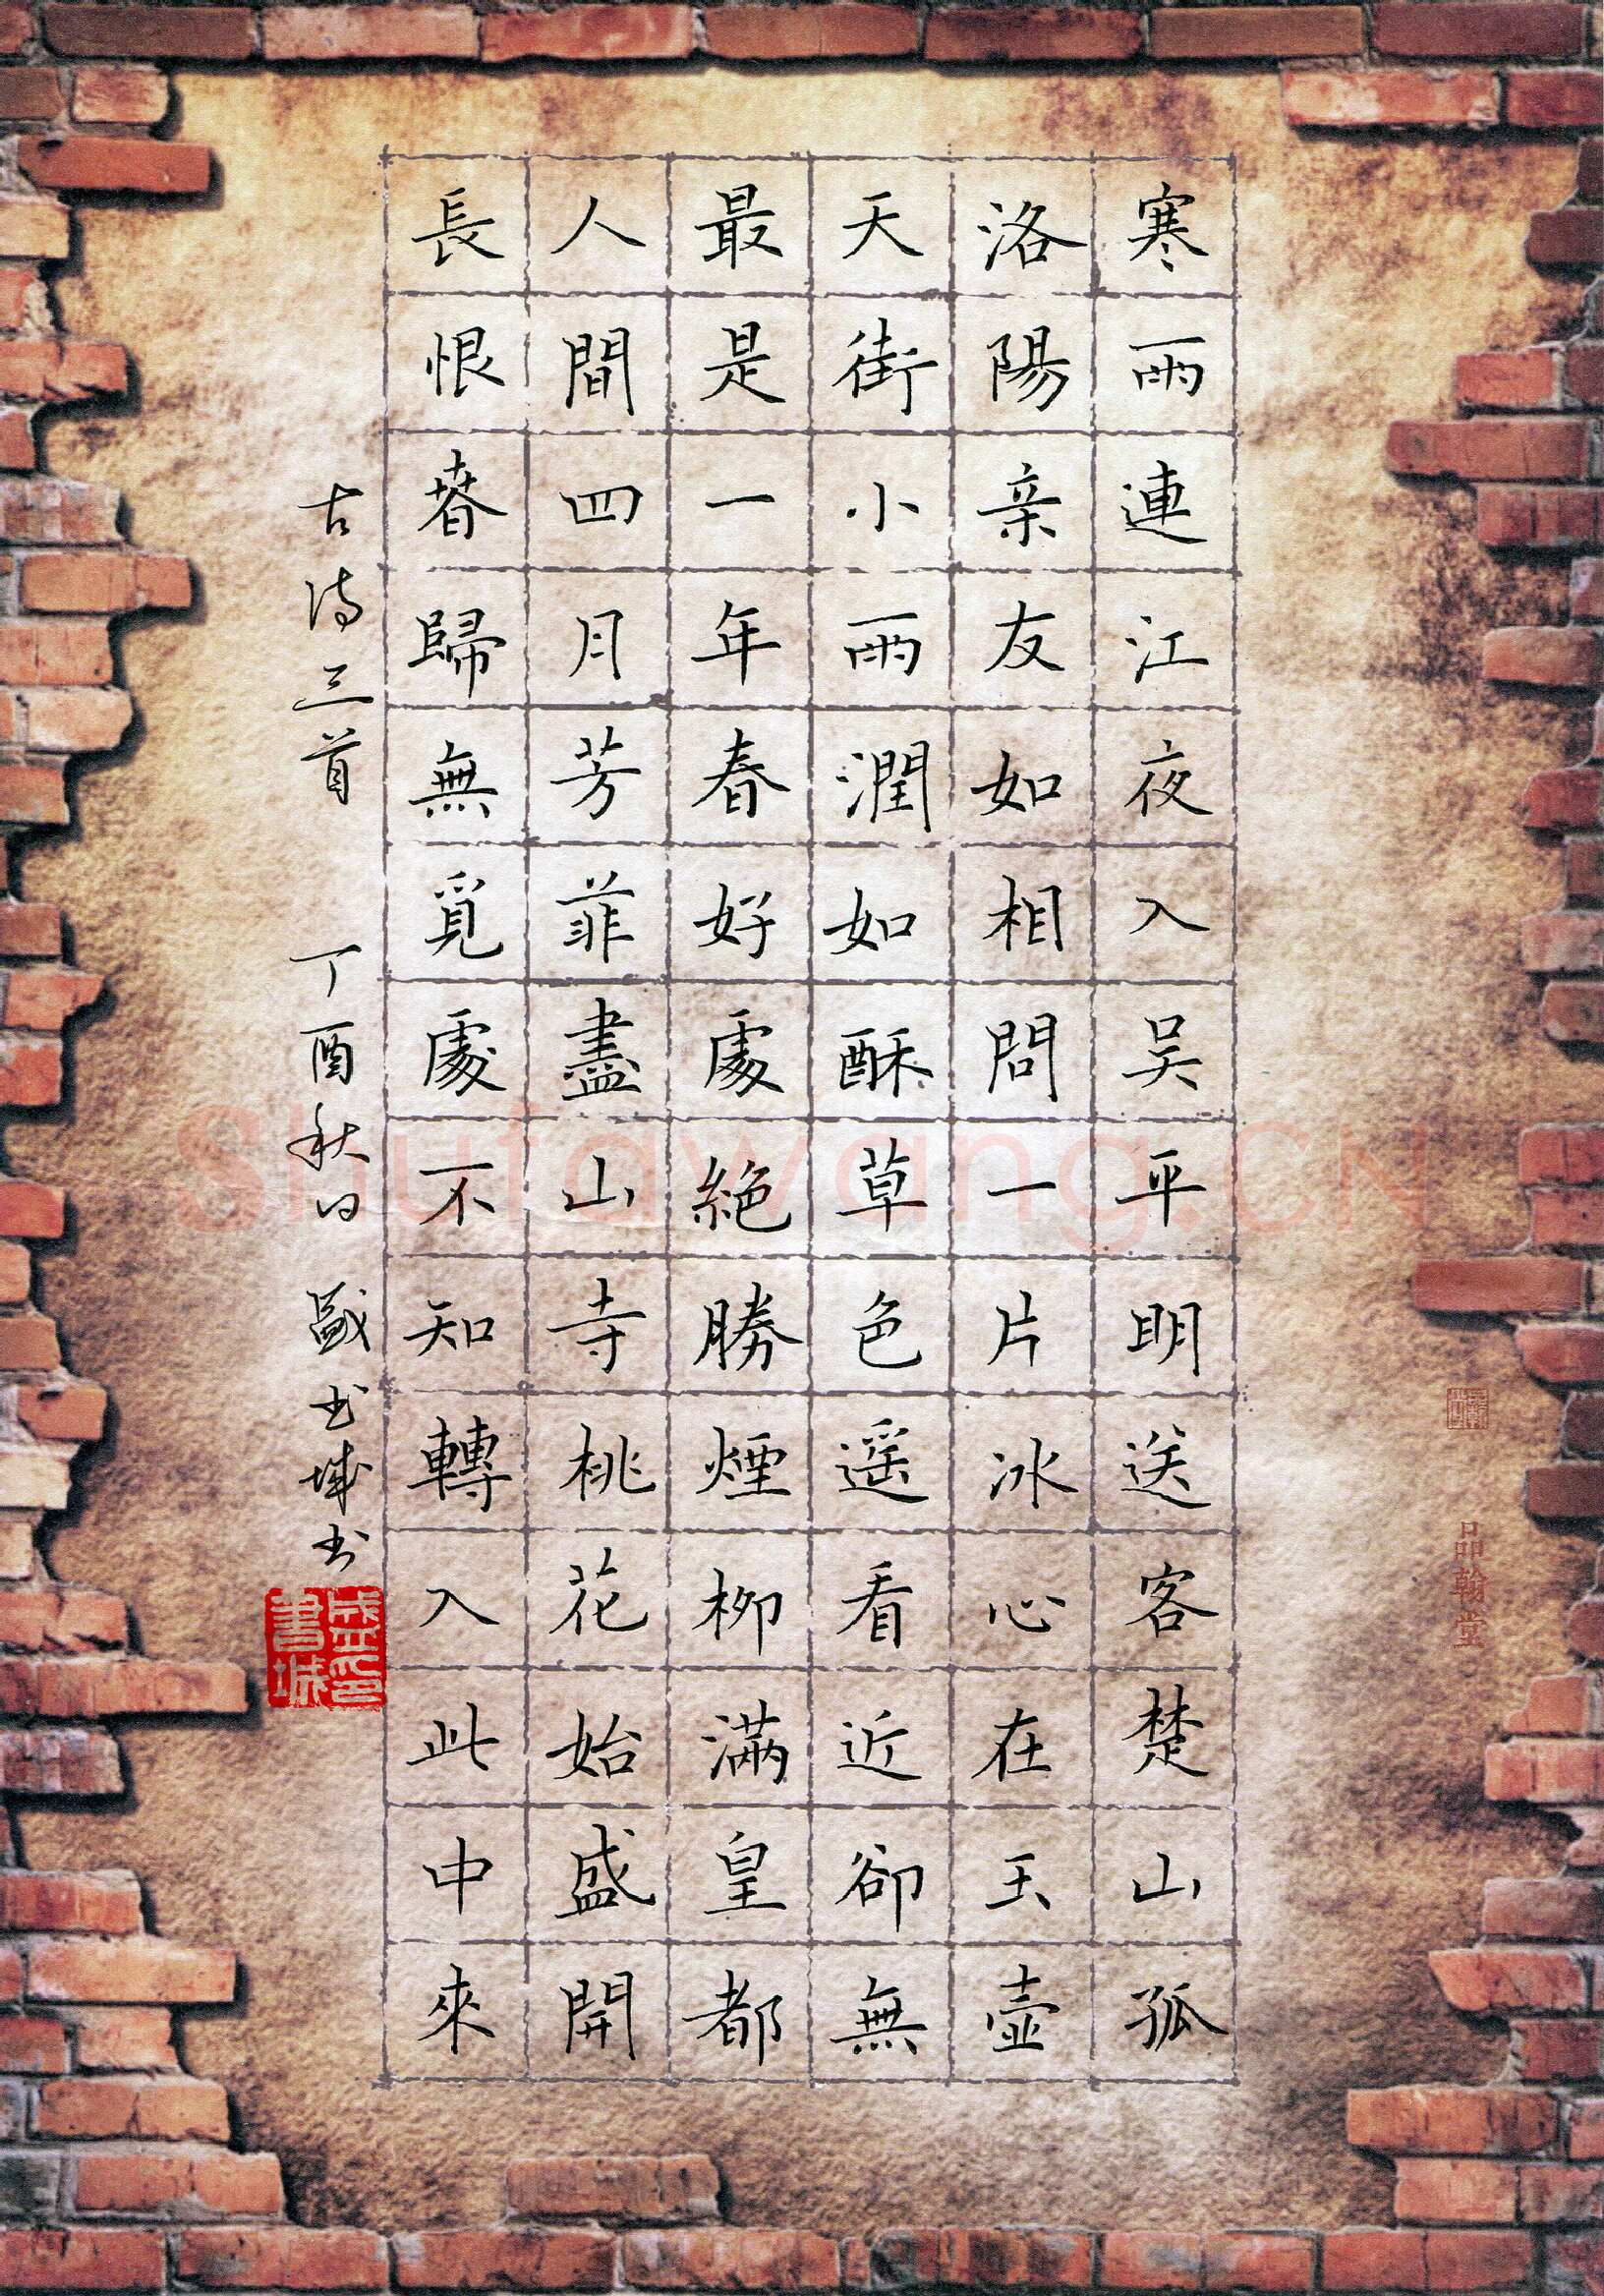 寒雨連江夜入吴平明送客楚山孤
洛陽亲友如相問一片冰心在玉壺
天街小雨潤如酥草色遥看近卻無
最是一年春好處絶勝煙柳滿皇都
人間四月芳菲盡山寺桃花始盛開
長恨春歸無覓處不知轉入此中來
古诗三首 丁酉秋日 盛书城书
盛印書城
品翰堂
shufawang.CN